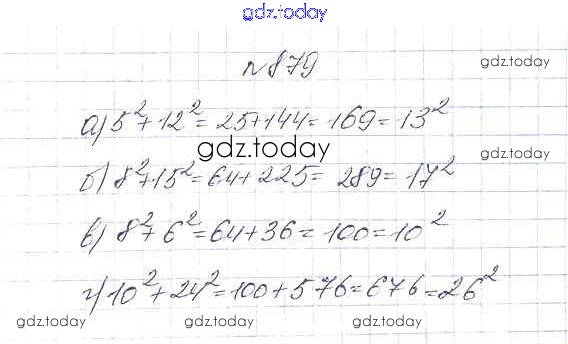 gdz.today
№879
gdz.today
а) 5²+12²=25+144=169=13²
gdz.today
gdz.today
б) 8²+15²=64+225=289=17²
в) 8²+6²=64+36=100=10²
г) 10²+24²=100+576=676=26²
gdz.today gdz.today gdz.today